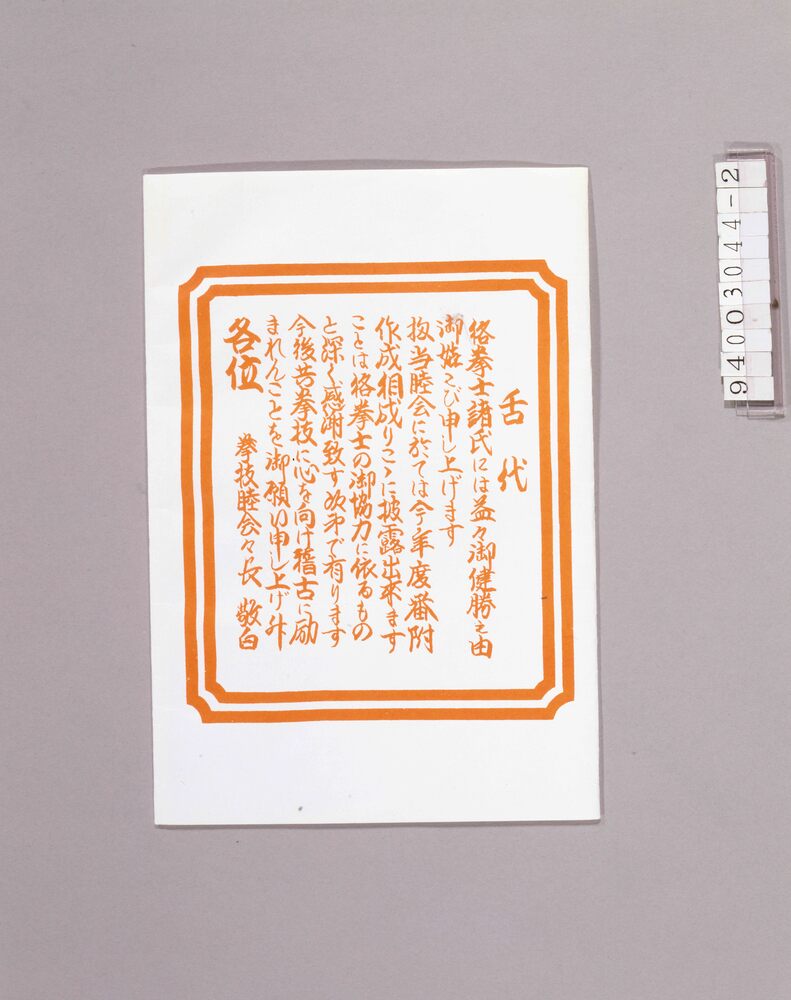 舌代
各拳士諸氏には益々御健勝之由
御慶び申し上げます
扨当睦会に於ては今年度番附
作成相成りこゝに披露出来ます
ことは各拳士の御協力に依るもの
と深く感謝致す次第で有ります
今後共拳技に心を向け稽古に励
まれんことを御願い申し上げ升
拳技睦会々長 敬白
各位
940 03044-2